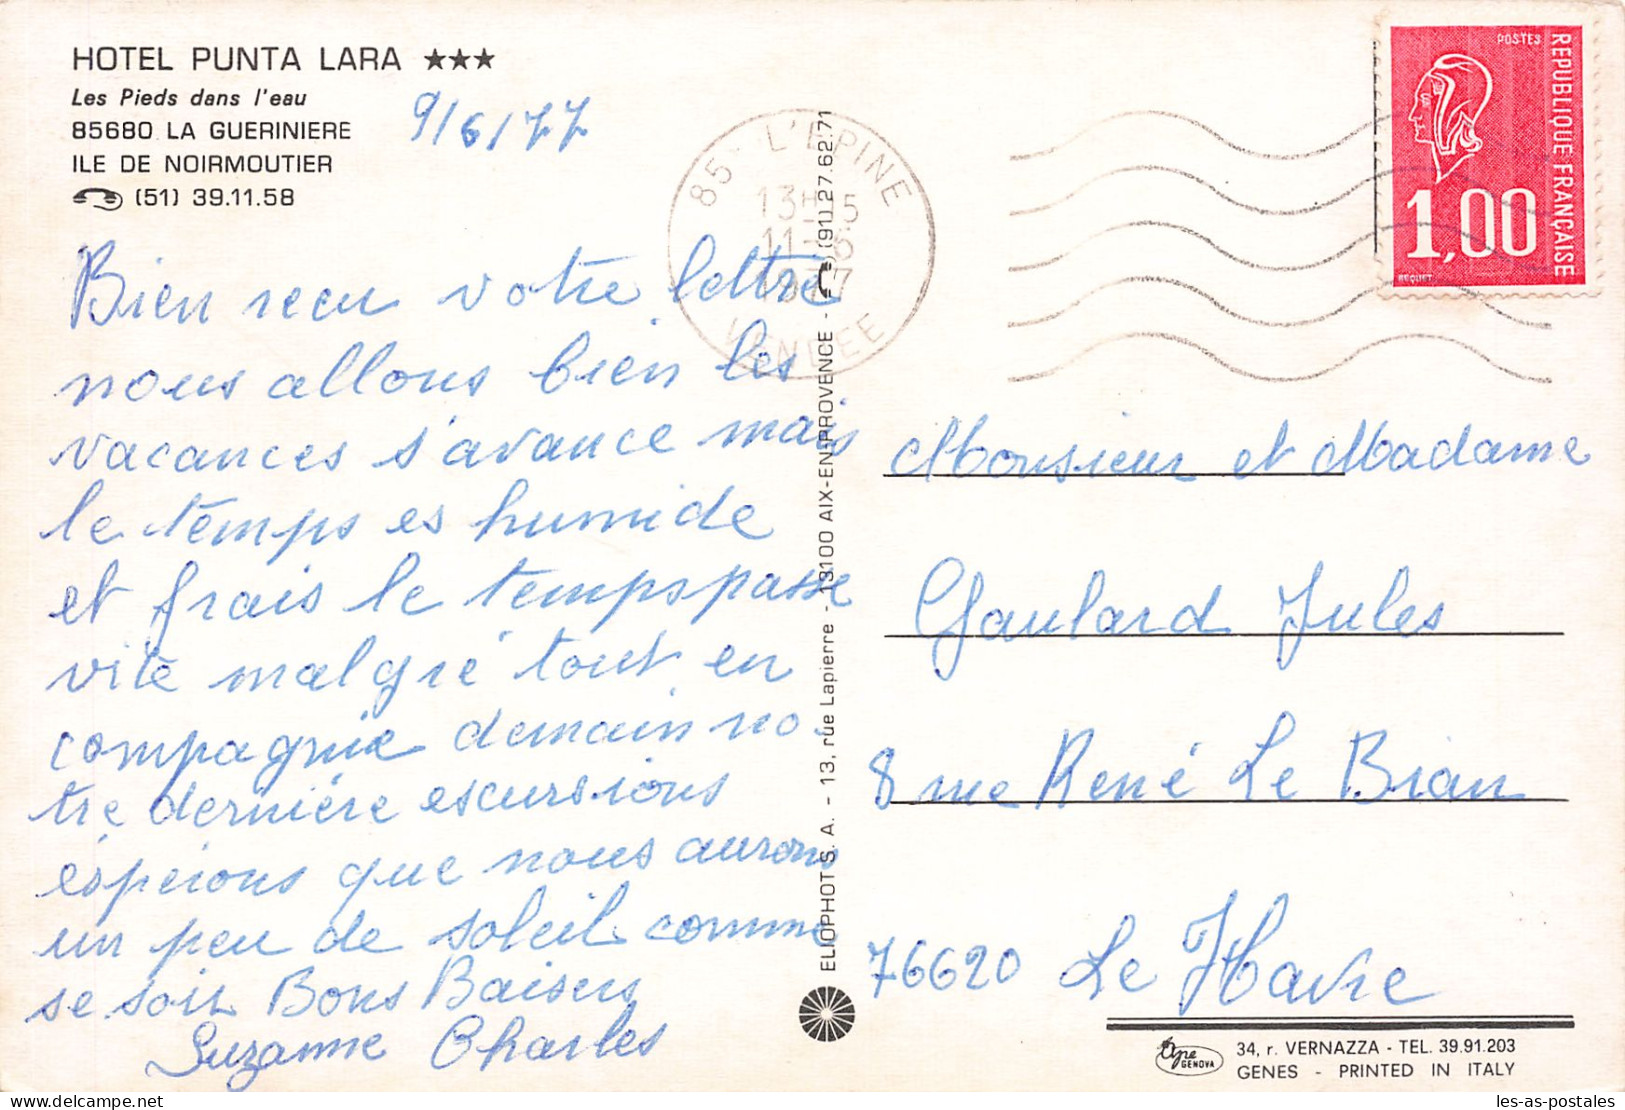 HOTEL PUNTA LARA ★★★
Les Pieds dans l'eau
85680 LA GUERINIERE
ILE DE NOIRMOUTIER
(51) 39.11.58
9/6/77
Bien recu votre lettre
nous allons bien les
vacances s'avance mais
le temps es humide
et frais le temps passe
vite malgré tout en
compagnie demain no
tre derniére escursions
éspérons que nous aurons
un peu de soleil comme
se soir Bons Baisers
Suzanne Charles
85 - L'EPINE
13H15
11-6
1977
VENDEE
ELIOPHOT S. A. - 13, rue Lapierre - 13100 AIX-EN-PROVENCE - (91) 27.62.71
POSTES
REPUBLIQUE FRANÇAISE
1,00
BEQUET
Monsieur et Madame
Gaulard Jules
8 rue René Le Bian
76620 Le Havre
ape GENOVA
34, r. VERNAZZA - TEL. 39.91.203
GENES - PRINTED IN ITALY
delcampe.net
les-as-postales